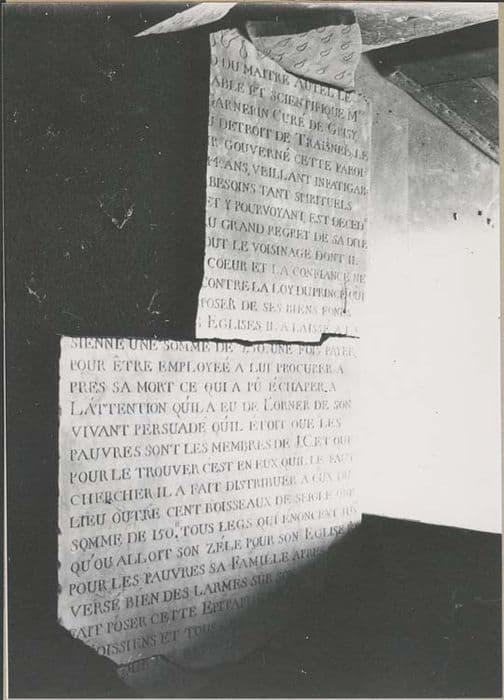 D DU MAITRE AUTEL, LE
ABLE ET SCIENTIFIQUE M
GARNERIN CURÉ DE GRISY
U DETROIT DE TRAISNEL, LE
GOUVERNÉ CETTE PAROI
ANS, VEILLANT INFATIGAB
BESOINS TANT SPIRITUELS
ET Y POURVOYANT, EST DECED
U GRAND REGRET DE SA DITE
OUT LE VOISINAGE DONT IL
COEUR ET LA CONFIANCE NE
CONTRE LA LOY DU PRINCE QUI
POSER DE SES BIENS FONDS
EGLISES IL A LAISSÉ A LA
SIENNE UNE SOMME DE 250. UNE FOIS PAYÉE
POUR ÊTRE EMPLOYEÉ A LUI PROCURER A
PRES SA MORT CE QUI A PÛ ÉCHAPER A
L'ATTENTION QU'IL A EU DE L'ORNER DE SON
VIVANT PERSUADÉ QU'IL ETOIT QUE LES
PAUVRES SONT LES MEMBRES DE J.C. ET QUE
POUR LE TROUVER C'EST EN EUX QU'IL LE FAUT
CHERCHER IL A FAIT DISTRIBUER A CUX DU
LIEU OUTRE CENT BOISSEAUX DE SEIGLE UNE
SOMME DE 150, TOUS LEGS QUI ENONCENT JUS
QU'OU ALLOIT SON ZÉLE POUR SON EGLISE ET
POUR LES PAUVRES SA FAMILLE APRES
VERSÉ BIEN DES LARMES SUR SON
FAIT POSER CETTE EPITAPH
OISSIENS ET TOUS
QUE